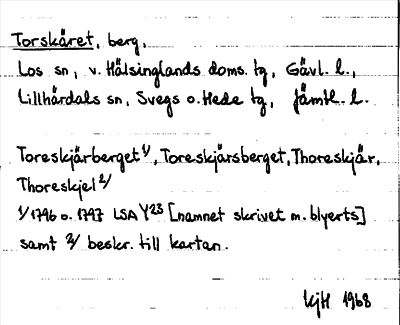 Torskäret, berg,
Los sn, v. Hälsinglands doms. tg, Gävl. l.,
Lillhärdals sn, Svegs o. Hede tg, Jämtl. l.
Toreskjärberget 1/, Toreskjärsberget, Thoreskjär,
Thoreskjel 2/
1/ 1796 o. 1797 LSA Y23 [namnet skrivet m. blyerts]
samt 2/ beskr. till kartan.
KjH 1968